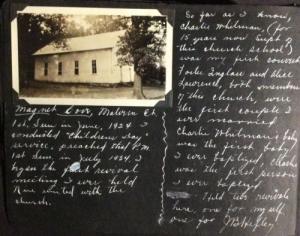 Magnet Cove, Malvern Ct.
1st. Sun in June, 1924 I
conducted Childrens day
service, preached that P.M.
1st Sun, in July 1924, I
began the first revival
meeting I ever held
Nine united with the
church.
So far as I know,
Charlie Whitman, (for
15 years now Supt of
this church school)
was my first convert
Foster Inglace and Miss
Lawrence, both members
of this church were
the first couple I
ever married
Charlie Whitman's baby
was the first baby
I ever baptized, Charlie
was the first person
I ever baptized
Held two revivals
here, one for myself
one for J W Hefley